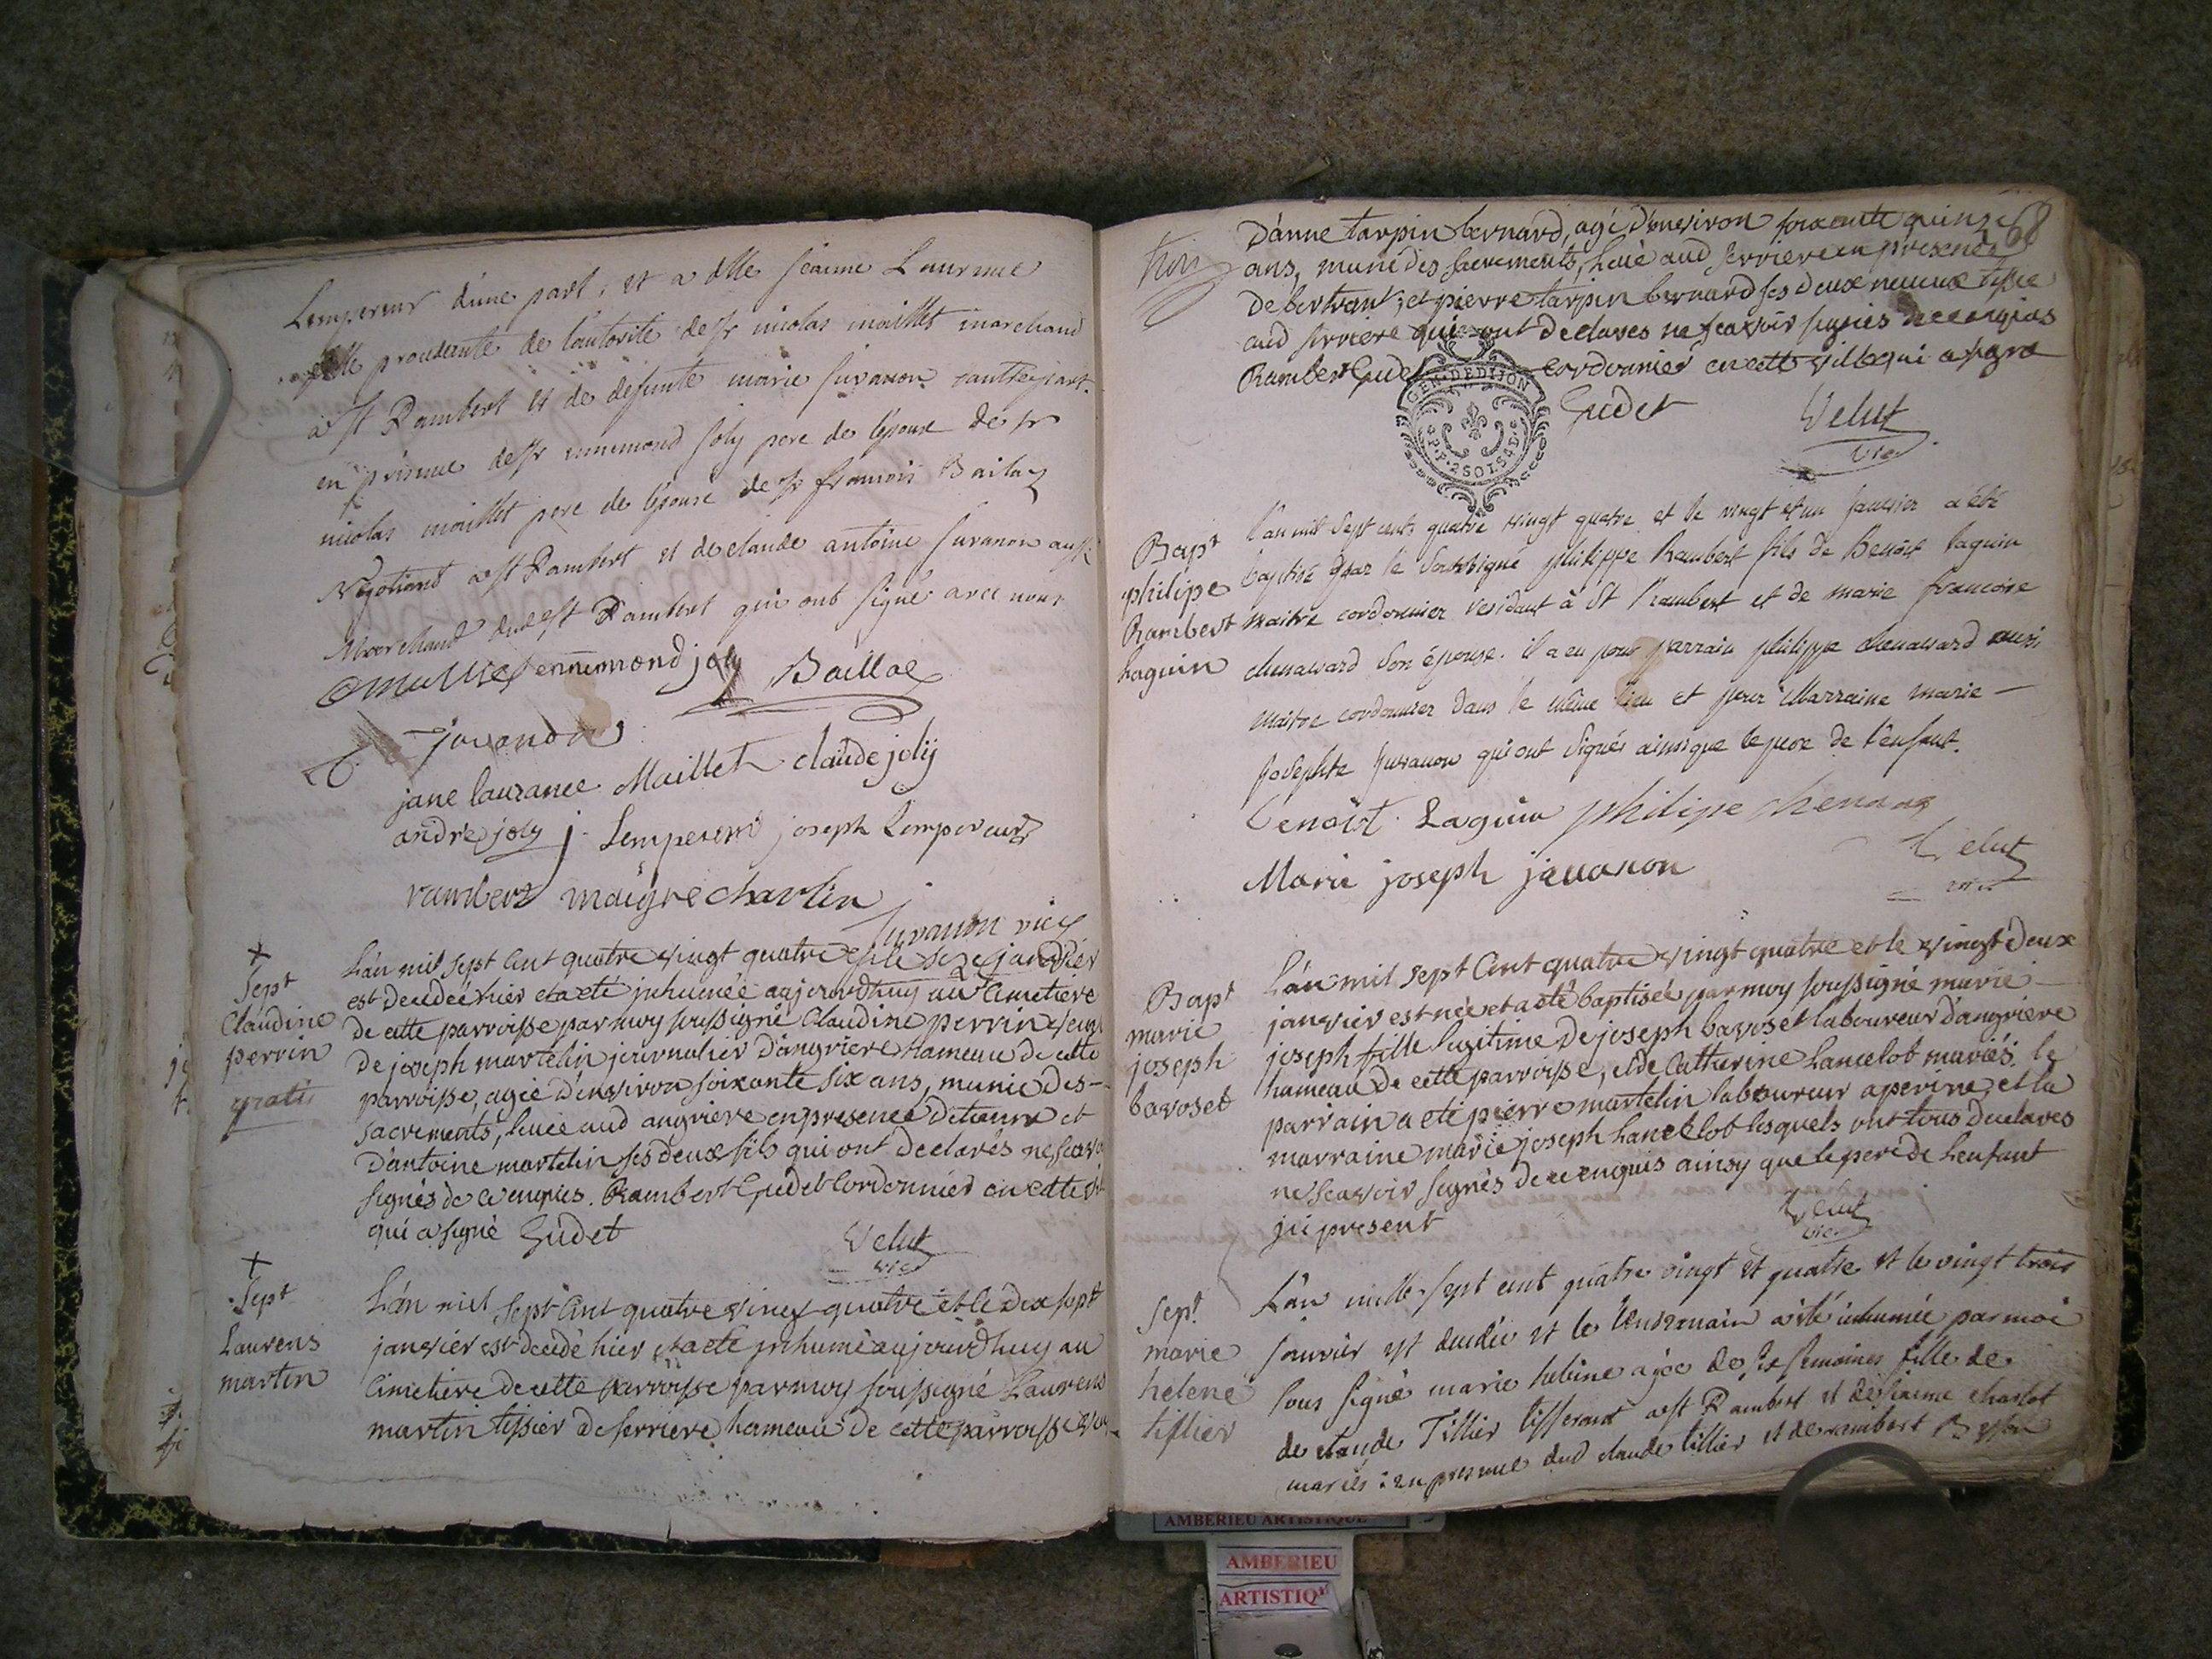 Lempereur d'une part, et a dlle jeanne Laurence
fille procedente de l'autorité de sr nicolas maillet marchand
a st Rambert et de defunte marie juvanon d'autre part.
en présence de sr ennemond joly pere de l'épouse de sr
nicolas maillet pere de l'épouse de sr francois Bailac
Négotiant a st Rambert et de claude antoine juvanon aussi
Marchand dud st Rambert qui ont signé avec nous
maillet ennemond joly Baillac
C. juvanon
jane laurance Maillet claude joly
andre joly j. Lempereur joseph Lempereur
rambert maigre charlin
juvanon vic
+
Sept
Claudine
perrin
gratis
L'an mil sept cent quatre vingt quatre et le seze janvier
est decedée hier et a eté inhumée aujourd'huy au cimetiere
de cette parroisse par moy soussigné Claudine perrin veuve
de joseph martelin journalier d'angriere hameau de cette
parroisse, agée d'environ soixante six ans, munie des
sacrements, levée aud angriere en presence d'etienne et
d'antoine martelin ses deux fils qui ont declarés ne scavoir
signés de ce enquis. Rambert Gudet Cordonnier en cette
qui a signé Gudet
Velut
vic
+
Sept
Laurens
martin
L'an mil sept cent quatre vingt quatre et le dix sept
janvier est decedé hier et a eté inhumé aujourd'huy au
cimetiere de cette parroisse par moy soussigné Laurens
martin tissier de serriere hameau de cette parroisse
68
D'anne tarpin bernard, agé d'environ soixante quinze
ans, muni des sacrements, levé aud serriere en presence
de bertrant, et pierre tarpin bernard ses deux neveux tissier
aud serriere qui ont declarés ne scavoir signés de ce enquis
Rambert Gudet cordonnier en cette ville qui a signé
GEN. DE DIJON
Gudet
Velut
vic
Bapt
philipe
Rambert
Laguin
L'an mil sept cents quatre vingt quatre et le vingt et un janvier a été
baptisé par le soussigné philippe Rambert fils de Benoit Laguin
maitre cordonnier residant à St Rambert et de marie francoise
chenavard son épouse. il a eu pour parrain philippe chenavard aussi
maitre cordonnier dans le même lieu et pour Marraine marie
josephte juvanon qui ont signés ainsi que le pere de l'enfant.
Benoist Laguin philipe chenavar
Velut
vic
Marie joseph javanon
Bapt
marie
joseph
bavoset
L'an mil sept cent quatre vingt quatre et le vingt deux
janvier est née et a eté baptisée par moy soussigné marie
joseph fille legitime de joseph bavoset laboureur d'angriere
hameau de cette parroisse, et de Catherine Lancelot mariés. le
parrain a eté pierre martelin laboureur a perine, et la
marraine marie joseph Lancelot lesquels ont tous declarés
ne scavoir signés de ce enquis ainsy que le pere de l'enfant
ici present
Velut
vic
Sept
marie
helene
tillier
L'an mille sept cent quatre vingt et quatre et le vingt trois
janvier est decedée et le lendemain a été inhumée par moi
sous signé marie helene agée de six semaines fille de
de claude Tillier tisserant a st Rambert et de jeanne charlot
mariés : en presence dud claude tillier et de rambert
AMBERIEU ARTISTIQUE
AMBERIEU
ARTISTIQ